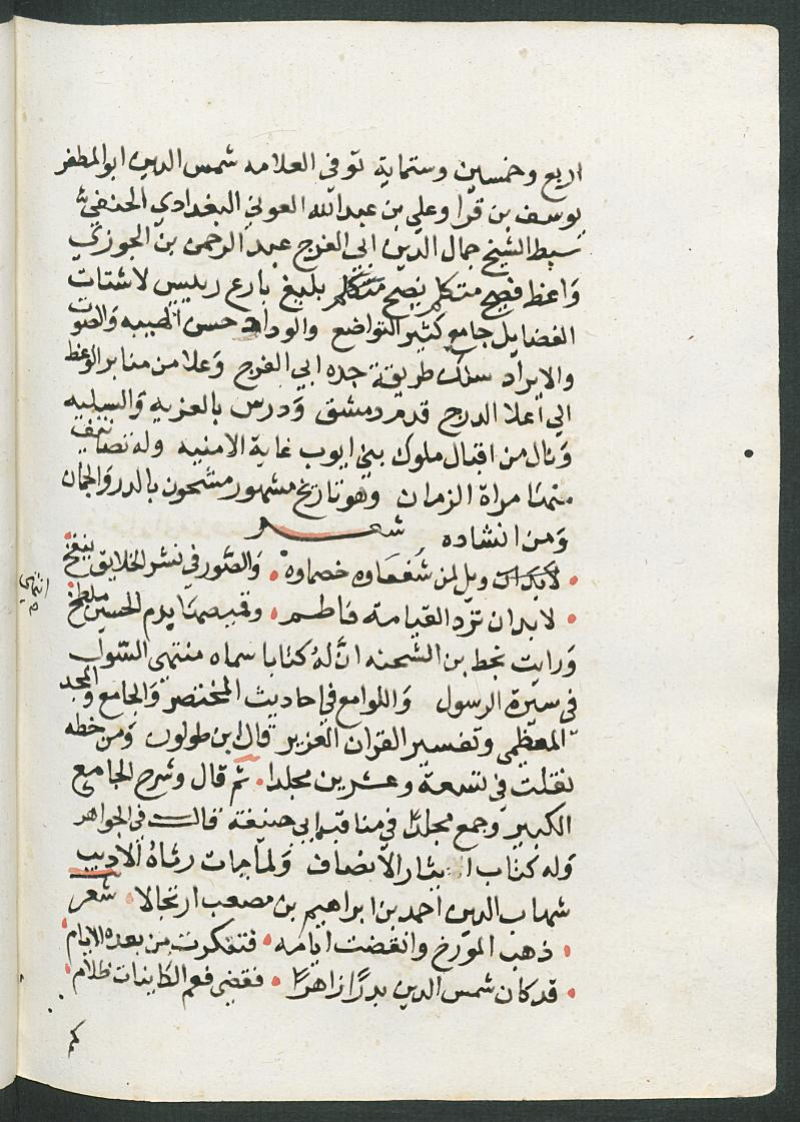 اربع وخمسين وستماية توفي العلامه شمس الدين ابو المظفر
يوسف بن قرا وعلي بن عبد الله العوني البغدادي الحنفي
سبط الشيخ جمال الدين ابي الفرج عبد الرحمن بن الجوزي
واعظ فصيح متكلم بليغ بارع رييس لاشتات
الفضايل جامع كثير التواضع والوداد حسن الطيبه والصوت
والايراد سلك طريقة جده ابي الفرج وعلا من منابر الوعظ
الي اعلا الدرج قدم دمشق ودرس بالعزيه والسبليه
ونال من اقبال ملوك بني ايوب غاية الامنيه وله تصانيف
منها مراة الزمان وهو تاريخ مشهور مشحون بالدر والجمان
ومن انشاده شعر
ويل لمن شفعاوه خصماوه والصور في نشر الخلايق ينفخ
لا بد ان ترد القيامة فاطم وقميصها بدم الحسين ملطخ
انتهي
ورايت بخط بن الشحنه ان له كتابا سماه منتهي السول
في سيرة الرسول واللوامع في احاديث المختصر والجامع والمجد
المعظمي وتفسير القران العزيز قال ابن طولون ومن خطه
نقلت في تسعة وعشرين مجلدا ثم قال وشرح الجامع
الكبير وجمع مجلدا في مناقب ابي حنيفة قال في الجواهر
وله كتاب ايثار الانصاف ولما مات رثاه الاديب
شهاب الدين احمد بن ابراهيم بن مصعب ارتجالا شعر
ذهب المورخ وانقضت ايامه فتفكرت من بعده الايام
قد كان شمس الدين بدرا زاهرا فقضي فعم الكاينات ظلام